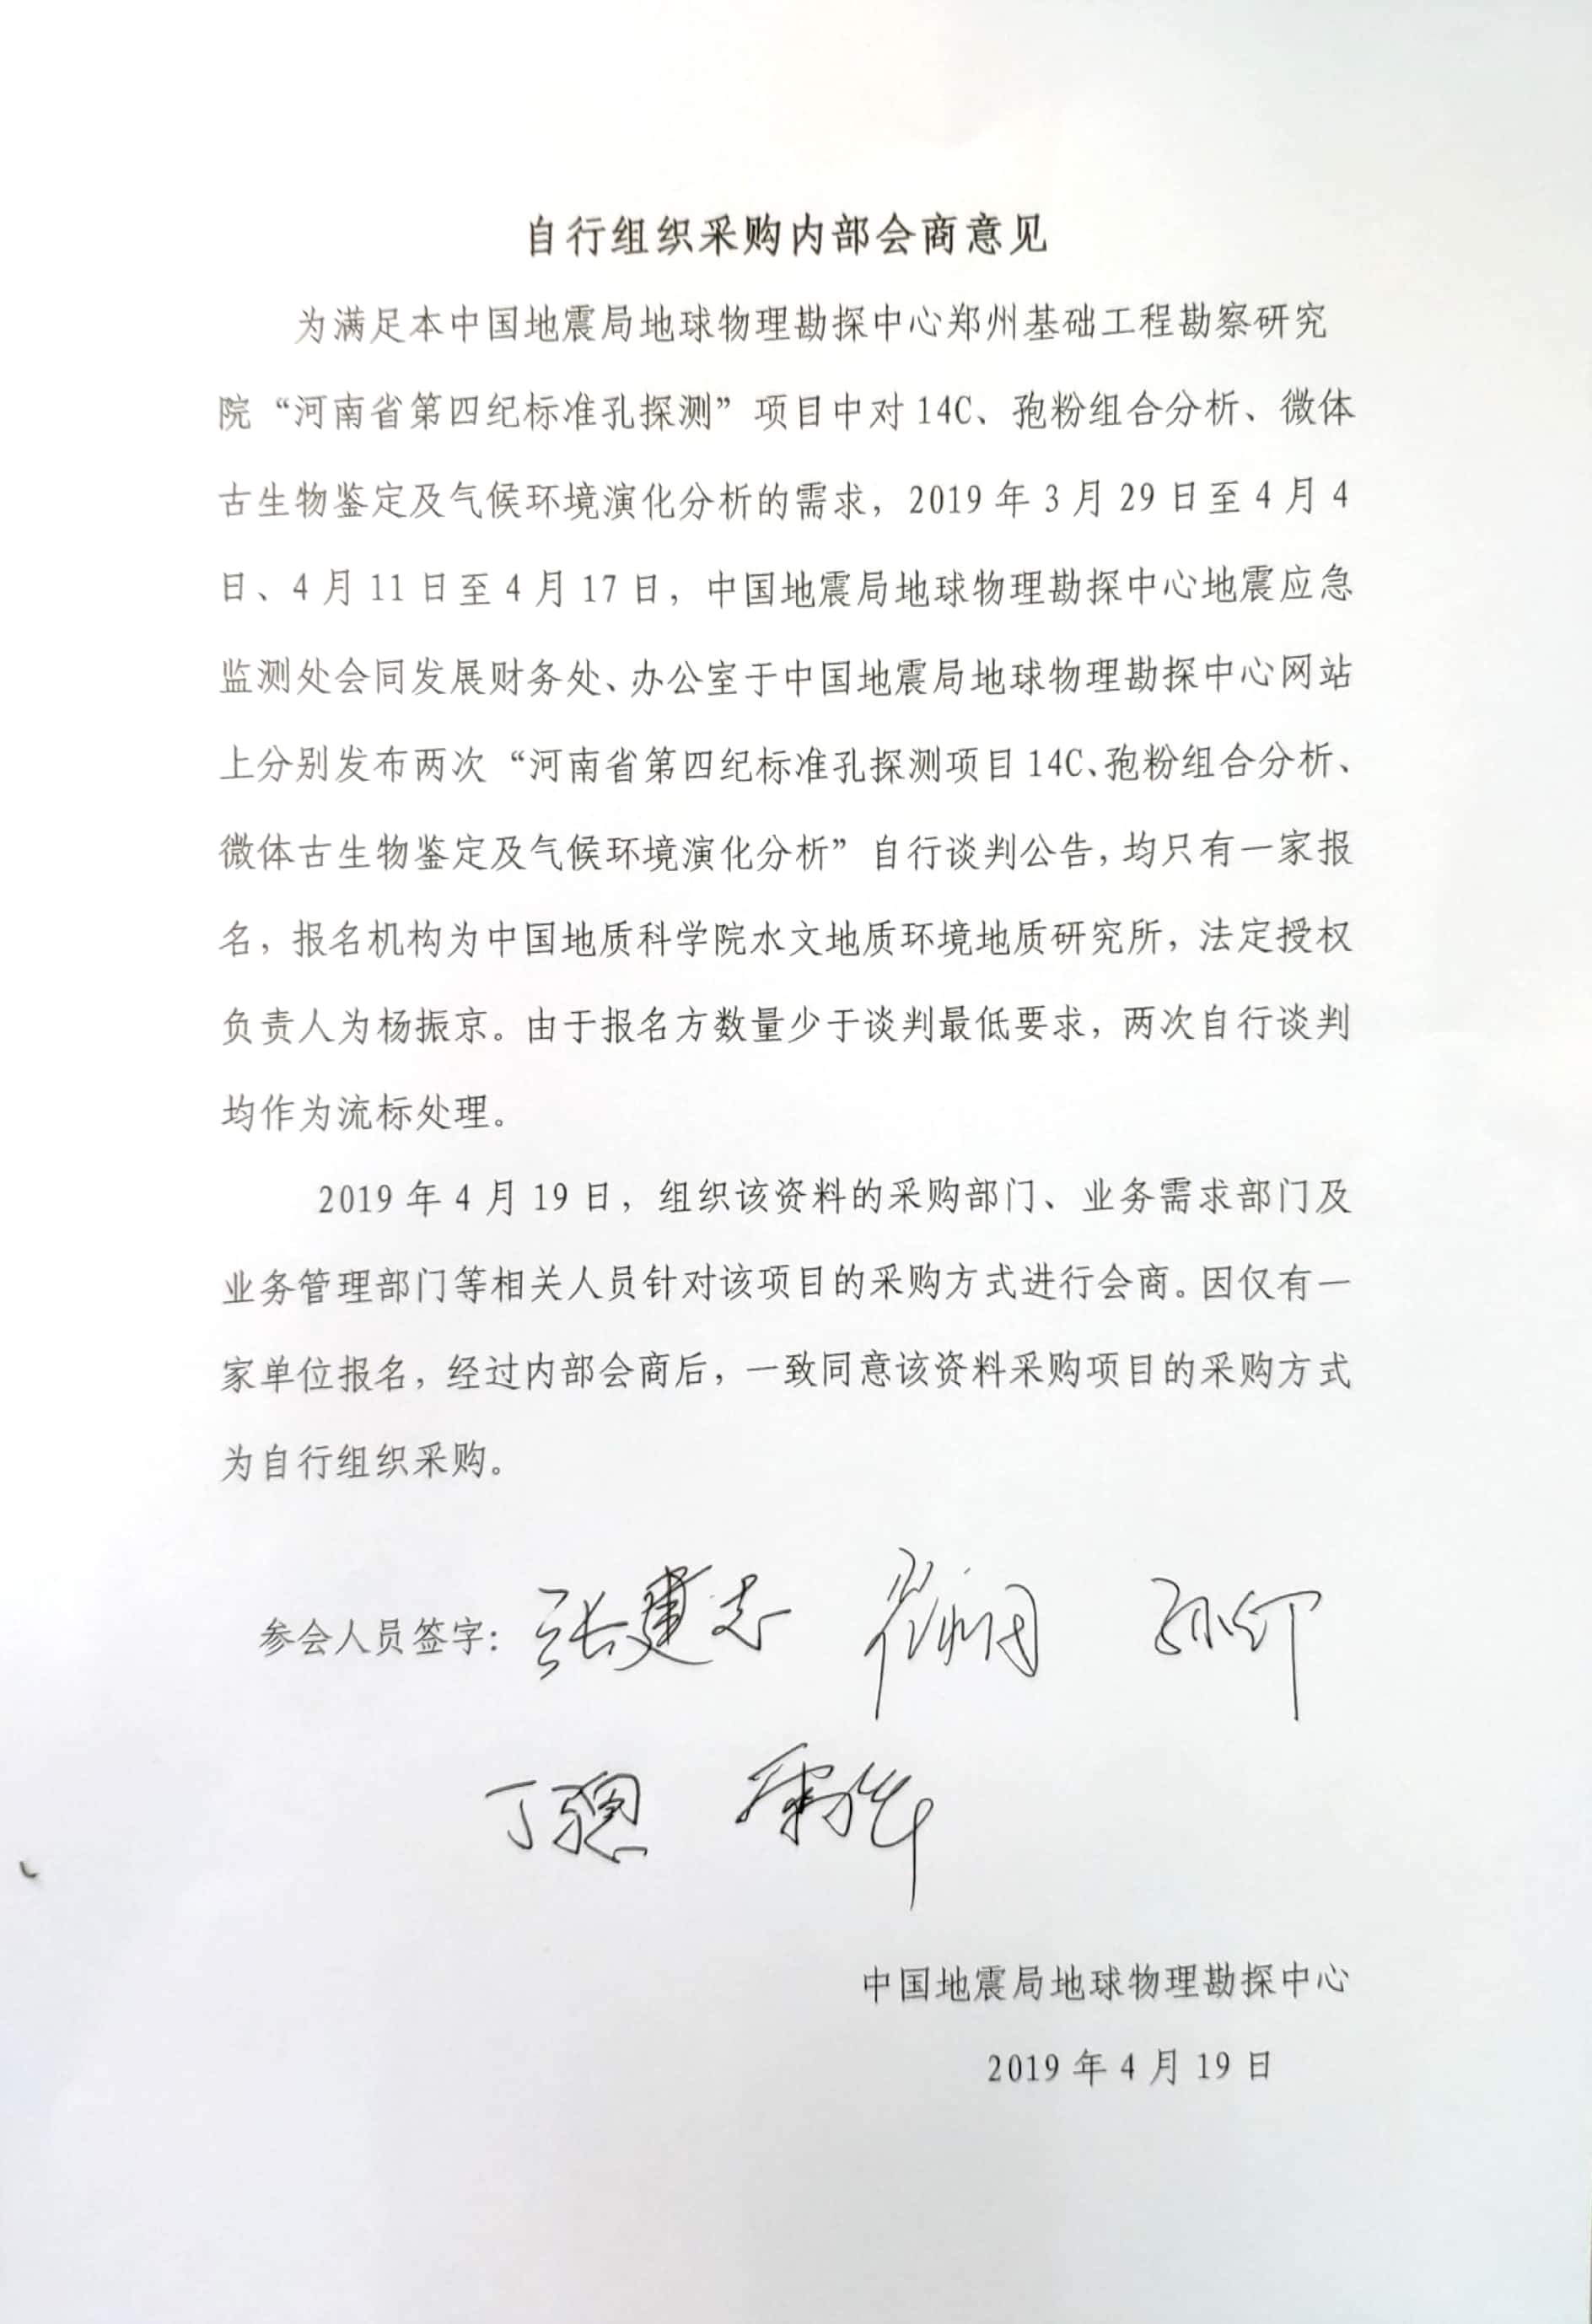 自行组织采购内部会商意见
为满足本中国地震局地球物理勘探中心郑州基础工程勘察研究
院“河南省第四纪标准孔探测”项目中对14C、孢粉组合分析、微体
古生物鉴定及气候环境演化分析的需求，2019年3月29日至4月4
日、4月11日至4月17日，中国地震局地球物理勘探中心地震应急
监测处会同发展财务处、办公室于中国地震局地球物理勘探中心网站
上分别发布两次“河南省第四纪标准孔探测项目14C、孢粉组合分析、
微体古生物鉴定及气候环境演化分析”自行谈判公告，均只有一家报
名，报名机构为中国地质科学院水文地质环境地质研究所，法定授权
负责人为杨振京。由于报名方数量少于谈判最低要求，两次自行谈判
均作为流标处理。
2019年4月19日，组织该资料的采购部门、业务需求部门及
业务管理部门等相关人员针对该项目的采购方式进行会商。因仅有一
家单位报名，经过内部会商后，一致同意该资料采购项目的采购方式
为自行组织采购。
参会人员签字：张建志
丁骢
中国地震局地球物理勘探中心
2019年4月19日